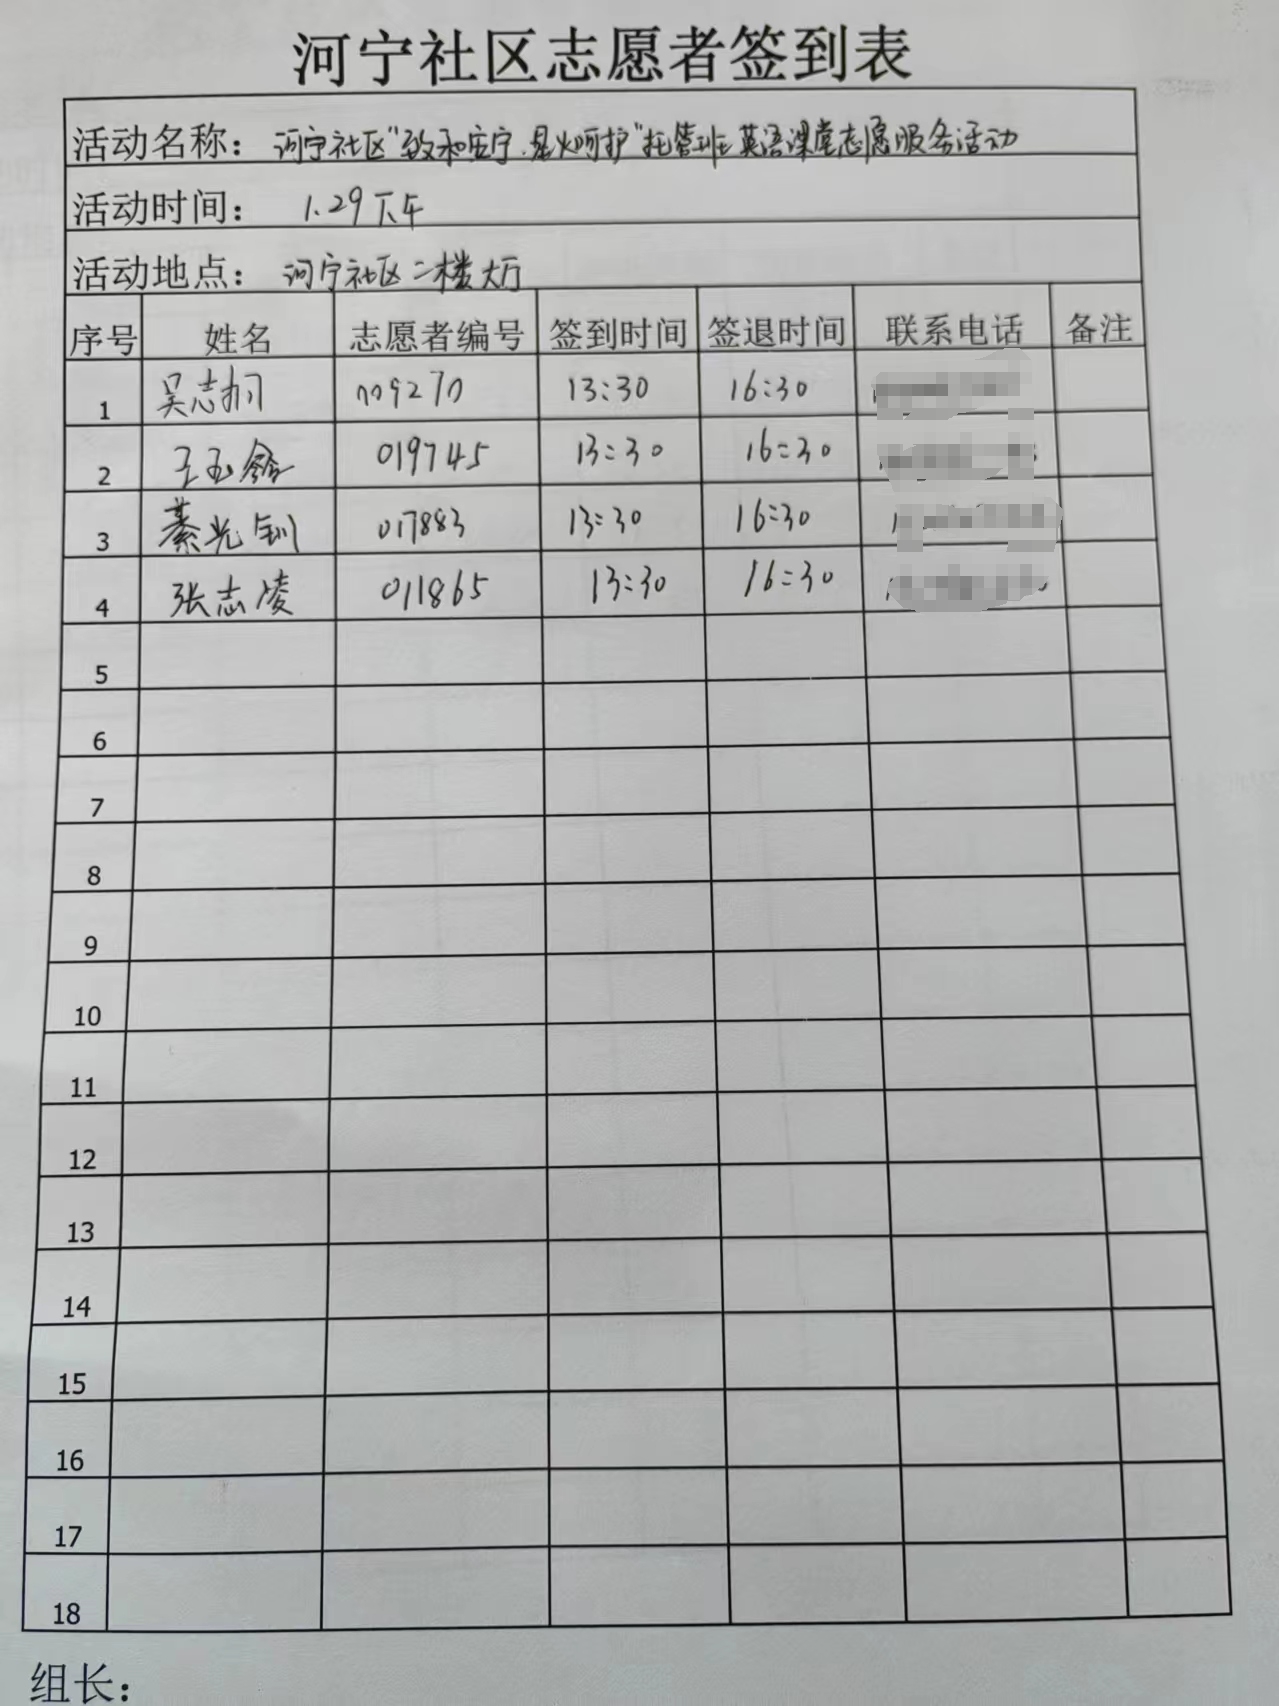 河宁社区志愿者签到表
活动名称： 河宁社区"致和宁,星火呵护"托管班英语课堂志愿服务活动
活动时间： 1.29下午
活动地点： 河宁社区二楼大厅
序号 姓名 志愿者编号 签到时间 签退时间 联系电话 备注
1 吴志 009270 13:30 16:30
2 王玉鑫 019745 13:30 16:30
3 綦光钏 017883 13:30 16:30
4 张志凌 011865 13:30 16:30
5
6
7
8
9
10
11
12
13
14
15
16
17
18
组长：